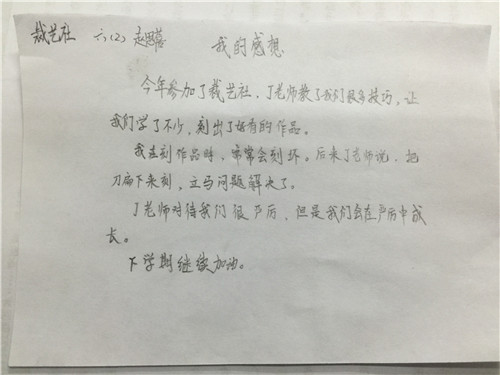 裁艺社 六(2) 赵思蓓 我的感想
今年参加了裁艺社，丁老师教了我们很多技巧，让
我们学了不少，刻出了好看的作品。
我在刻作品时，常常会刻坏。后来丁老师说，把
刀扁下来刻，立马问题解决了。
丁老师对待我们很严厉，但是我们会在严厉中成
长。
下学期继续加油。